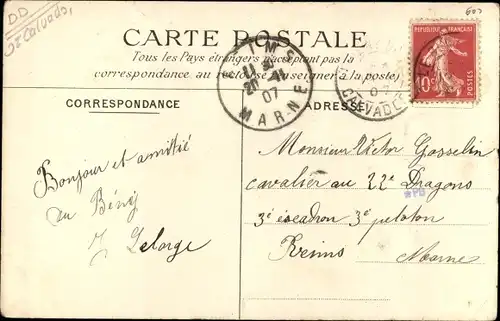 DD
Calvados
607
CARTE POSTALE
Tous les Pays étrangers n'acceptent pas la
correspondance au recto. (Se renseigner à la poste)
REIMS
07
MARNE
07
CALVADOS
RÉPUBLIQUE FRANÇAISE
10c
POSTES
CORRESPONDANCE
ADRESSE
Bonjour et amitié
du Bény
Lelarge
Monsieur Victor Gosselin
cavalier au 22e Dragons
3e escadron 3e peloton
Reims Marne